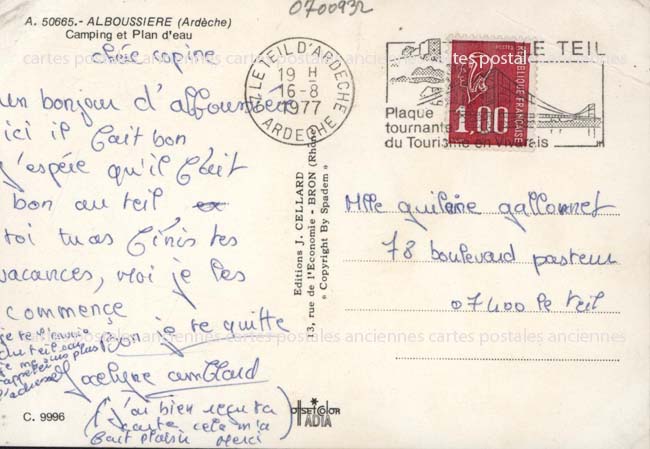 0700932
A. 50665.- ALBOUSSIERE (Ardèche)
Camping et Plan d'eau
chée copine
un bonjour d'alboussière
ici il fait bon
j'espére qu'il fait
bon au teil
toi tu as finis tes
vacances, moi je les
commençe
Bon je te quitte
jocelyne
(j'ai bien reçu ta
carte cela m'a
fait plaisir merci)
je te l'envoie
au teil car
je me suis plus
rappeler
l'adresse
C. 9996
07 LE TEIL D'ARDECHE
19 H
16-8
1977
ARDECHE
LE TEIL
Plaque
tournante
du Tourisme en Vivarais
POSTES
REPUBLIQUE FRANÇAISE
1,00
Editions J. CELLARD
13, rue de l'Economie - BRON (Rhône)
« Copyright By Spadem »
Mlle guilaine gallonnet
78 boulevard pasteur
07400 le teil
offset COlOR
ADIA
cartes postales anciennes cartes postales anciennes cartes postales anciennes
tes postales